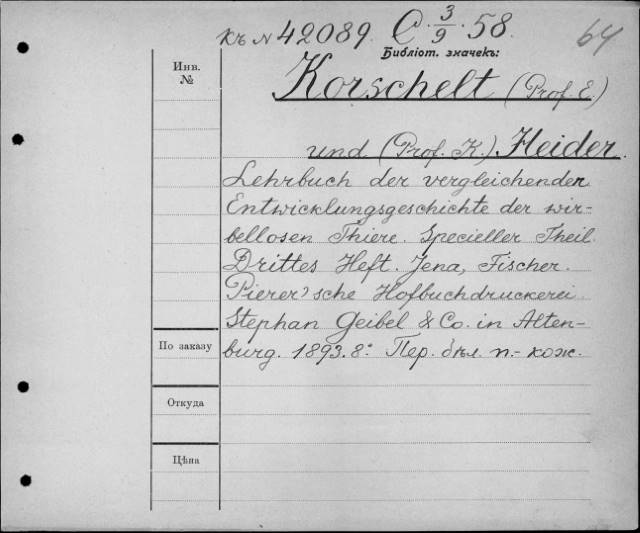 Къ N 42089. C. 3/9. 58.
64
Библіот. значекъ:
Инв.
№
Korschelt (Prof. E.)
und (Prof. K.) Heider.
Lehrbuch der vergleichenden
Entwicklungsgeschichte der wir-
bellosen Thiere. Specieller Theil.
Drittes Heft. Jena, Fischer.
Pierer'sche Hofbuchdruckerei.
Stephan Geibel & Co. in Alten-
По заказу
burg. 1893. 8º. Пер. бѣл. п.-кож.
Откуда
Цѣна